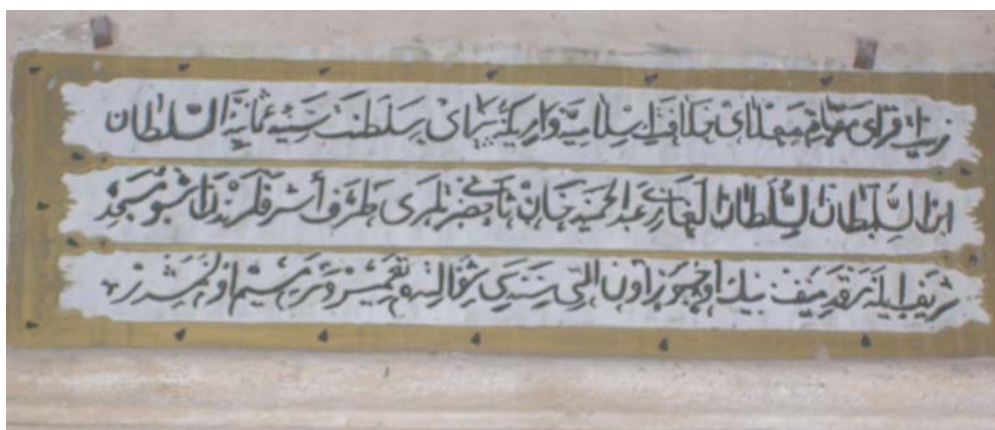 زينت افزاى مقام معلاى خلافت اسلاميه واريكه پيراى سلطنت سنيه عثمانيه السلطان
ابن السلطان السلطان الغازى عبد الحميد خان ثانى حضرتلرى طرف أشرفلرندن اشبو مسجد
شريف ايله مرقد منيف بيك اوچيوز اون التى سنه سى تعمير وترميم اولنمشدر